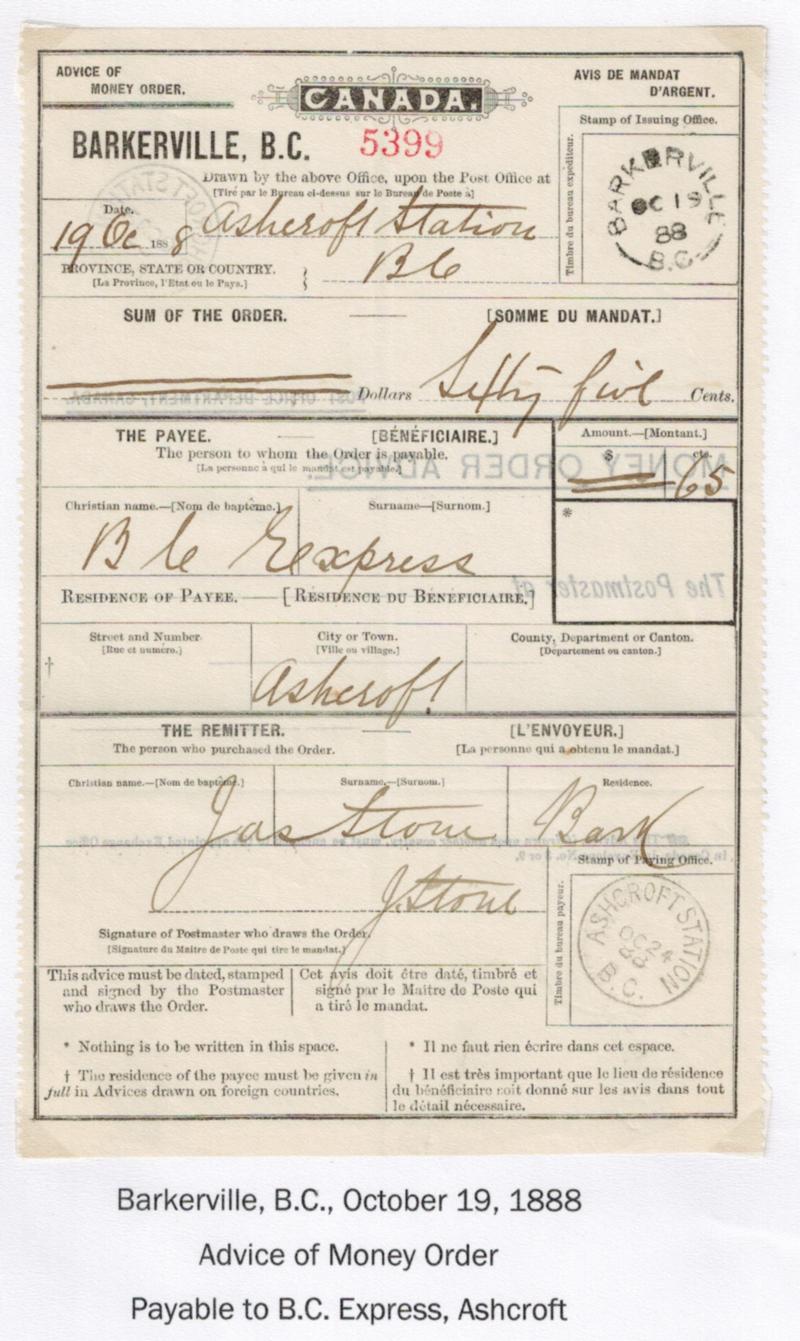 ADVICE OF
MONEY ORDER.
CANADA.
AVIS DE MANDAT
D'ARGENT.
BARKERVILLE, B.C. 5399
Drawn by the above Office, upon the Post Office at
[Tiré par le Bureau ci-dessus sur le Bureau de Poste à]
Stamp of Issuing Office.
Timbre du bureau expéditeur.
BARKERVILLE
OC 19
88
B.C.
Date.
19 Oc 1888 Ashcroft Station
PROVINCE, STATE OR COUNTRY. BC
[La Province, l'Etat ou le Pays.]
SUM OF THE ORDER. [SOMME DU MANDAT.]
Dollars Sixty five Cents.
POST OFFICE DEPARTMENT, CANADA.
THE PAYEE. [BÉNÉFICIAIRE.]
The person to whom the Order is payable.
[La personne à qui le mandat est payable.]
Amount.—[Montant.]
$ cts.
65
MONEY ORDER ADVICE.
Christian name.—[Nom de baptême.] Surname—[Surnom.]
B C Express
*
The Postmaster at
RESIDENCE OF PAYEE.—[RÉSIDENCE DU BÉNÉFICIAIRE.]
Street and Number City or Town. County, Department or Canton.
[Rue et numéro.] [Ville ou village.] [Département ou canton.]
†
Ashcroft
THE REMITTER. [L'ENVOYEUR.]
The person who purchased the Order. [La personne qui a obtenu le mandat.]
Christian name.—[Nom de baptême.] Surname,—[Surnom.] Residence.
Jas Stone Bark
J. Stone
Signature of Postmaster who draws the Order.
[Signature du Maitre de Poste qui tire le mandat.]
Stamp of Paying Office.
Timbre du bureau payeur.
ASHCROFT STATION
OC 24
88
B.C.
This advice must be dated, stamped
and signed by the Postmaster
who draws the Order.
Cet avis doit être daté, timbré et
signé par le Maitre de Poste qui
a tiré le mandat.
* Nothing is to be written in this space.
† The residence of the payee must be given in
full in Advices drawn on foreign countries.
* Il ne faut rien écrire dans cet espace.
† Il est très important que le lieu de résidence
du bénéficiaire soit donné sur les avis dans tout
le détail nécessaire.
Barkerville, B.C., October 19, 1888
Advice of Money Order
Payable to B.C. Express, Ashcroft